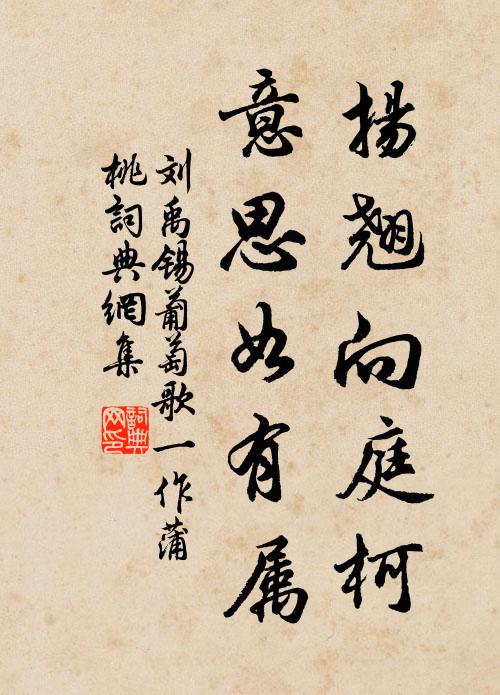 揚翹向庭柯
意思如有属
刘禹锡葡萄歌一作蒲
桃詞典網集
詞典
网印